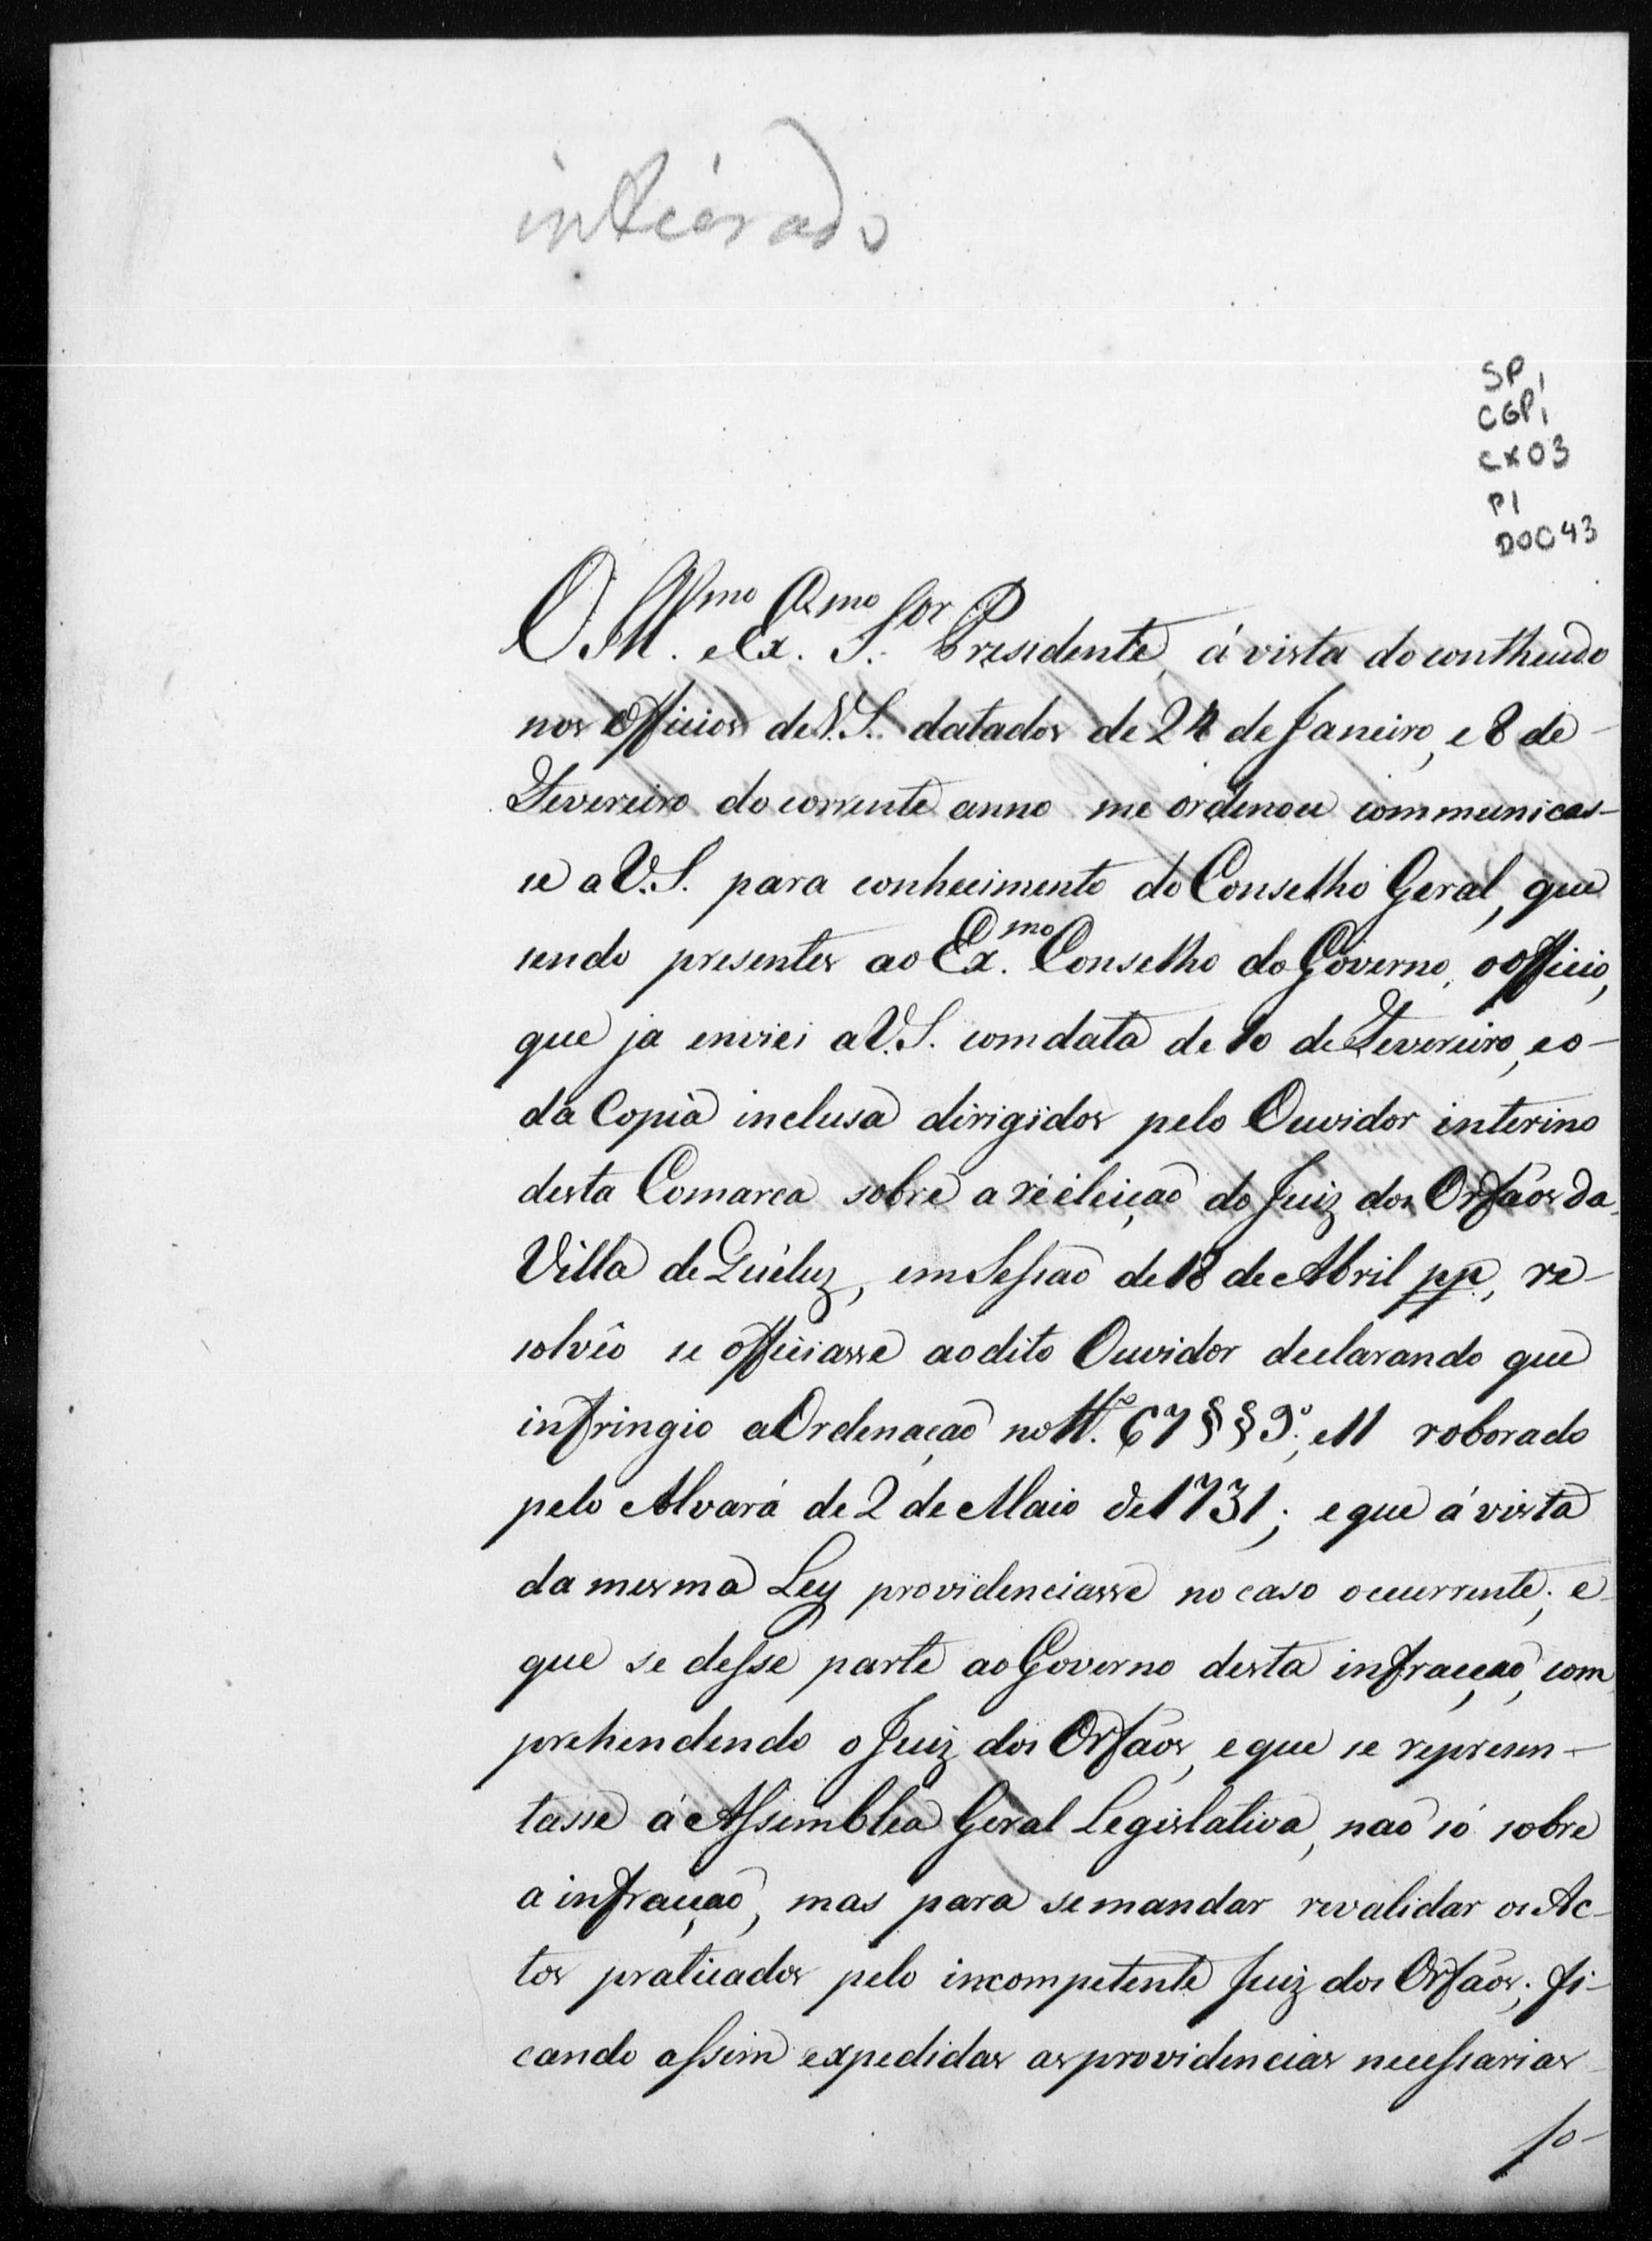 inteirado
SP,
CGP,
CX03
P1
DOC43
O Ill.mo e Ex.mo S.or Presidente, á vista do contheudo
nos Officios de V.S. datados de 24 de Janeiro, e 8 de
Fevereiro do corrente anno me ordenou communicas-
se a V.S. para conhecimento do Conselho Geral, que
sendo presentes ao Ex.mo Conselho do Governo, o Officio,
que ja enviei a V.S. com data de 10 de Fevereiro, e o
da Copia inclusa dirigidos pelo Ouvidor interino
desta Comarca sobre a reeleição do Juiz dos Orfãos da
Villa de Quéluz, em Sessão de 18 de Abril pp., re-
solvêo se officiasse ao dito Ouvidor declarando que
infringio a Ordenação no tt.º 67 §§ 9.º, e 11 roborado
pelo Alvará de 2 de Maio de 1731; e que á vista
da mesma Ley providenciasse no caso occurrente; e
que se desse parte ao Governo desta infracção, com
prehendendo o Juiz dos Orfãos, e que se represen-
tasse á Assemblea Geral Legislativa, não só sobre
a infracção, mas para se mandar revalidar os Ac-
tos praticados pelo incompetente Juiz dos Orfãos; fi-
cando assim expedidas as providencias necessarias
so-